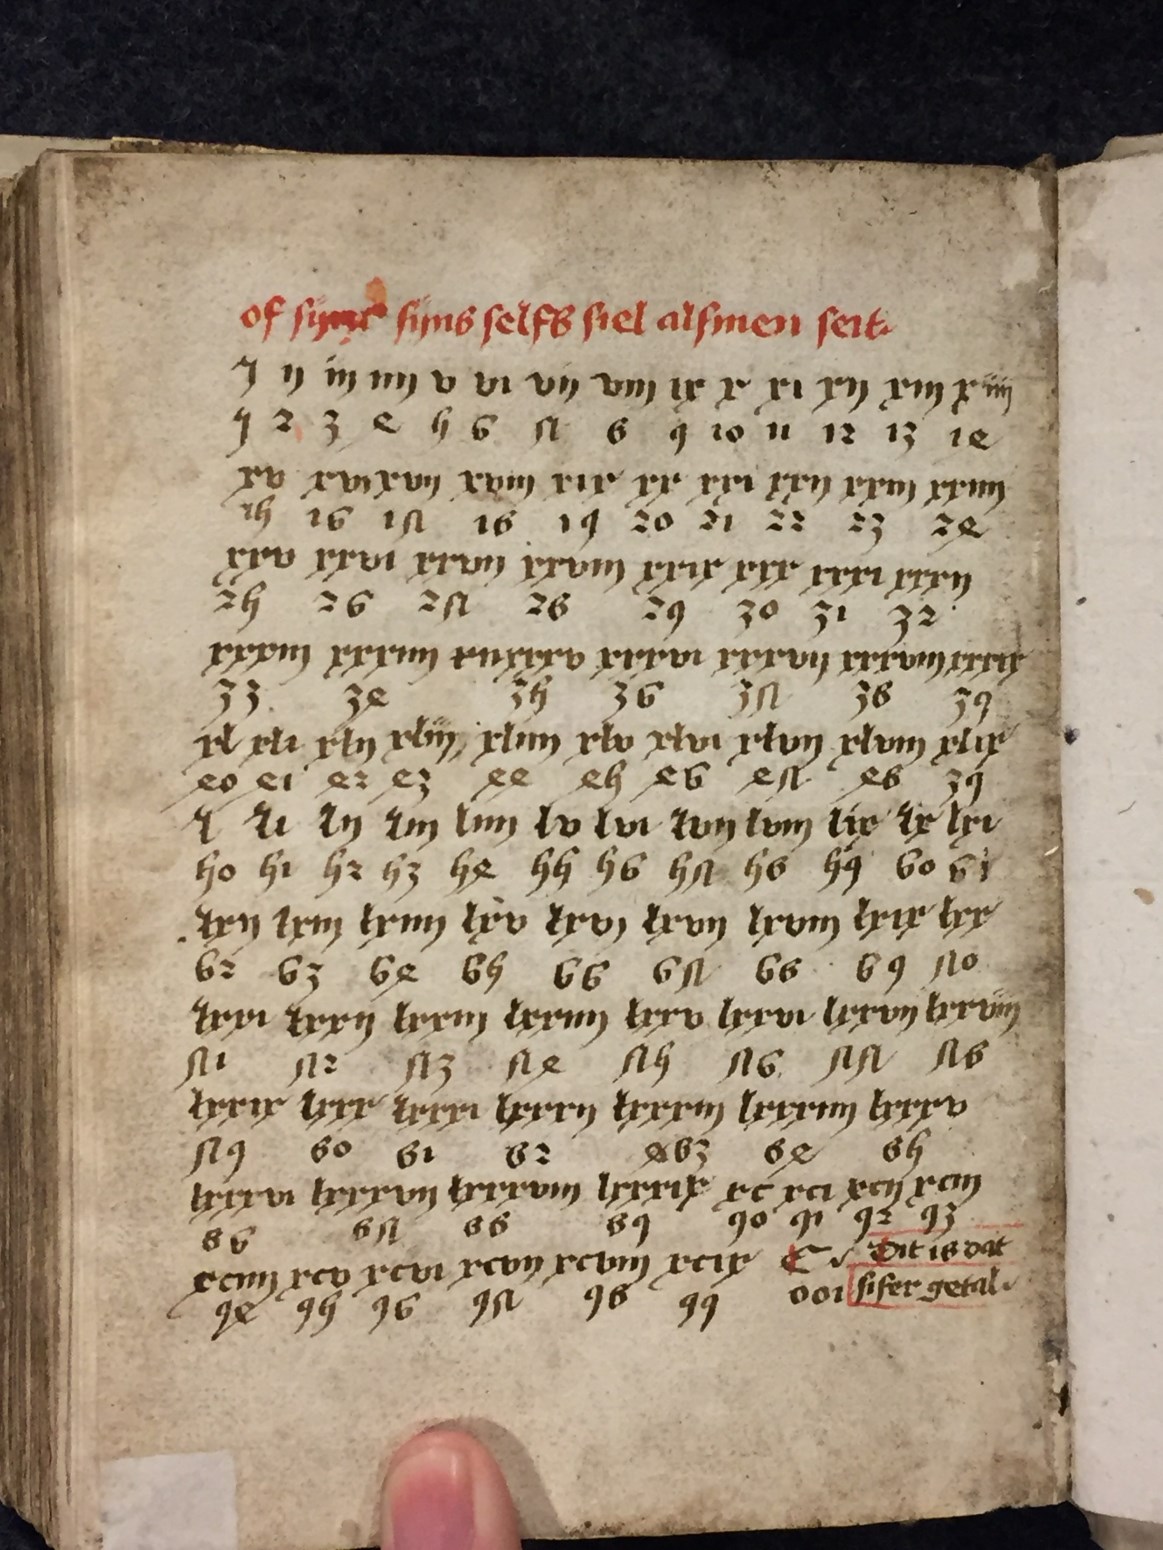 of sijns selfs siel alsmen seit.
j ij iij iiij v vi vij viij ix x xi xij xiij xiiij
1 2 3 4 5 6 7 8 9 10 11 12 13 14
xv xvi xvij xviij xix xx xxi xxij xxiij xxiiij
15 16 17 18 19 20 21 22 23 24
xxv xxvi xxvij xxviij xxix xxx xxxi xxxij
25 26 27 28 29 30 31 32
xxxiij xxxiiij xxxv xxxvi xxxvij xxxviij xxxix
33 34 35 36 37 38 39
xl xli xlij xliij xliiij xlv xlvi xlvij xlviij xlix
40 41 42 43 44 45 46 47 48 39
l li lij liij liiij lv lvi lvij lviij lix lx lxi
50 51 52 53 54 55 56 57 58 59 60 61
lxij lxiij lxiiij lxv lxvj lxvij lxviij lxix lxx
62 63 64 65 66 67 68 69 70
lxxi lxxij lxxiij lxxiiij lxxv lxxvi lxxvij lxxviij
71 72 73 74 75 76 77 78
lxxix lxxx lxxxi lxxxij lxxxiij lxxxiiij lxxxv
79 80 81 82 83 84 85
lxxxvi lxxxvij lxxxviij lxxxix xc xci xcij xciij
86 87 88 89 90 91 92 93
xciiij xcv xcvi xcvij xcviij xcix C Dit is dat
94 95 96 97 98 99 001 sifer getal